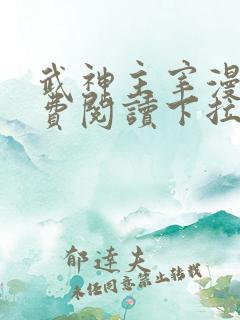 武神主宰漫
費閱讀下拉
郁達夫
未經同意禁止轉載